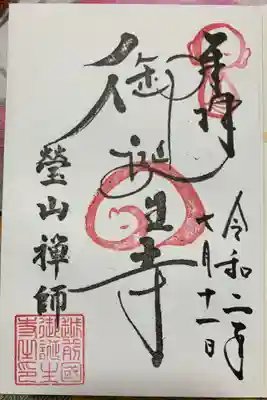 奉拝
令和二年
六月十一日
御誕生寺
瑩山禅師
越前國
御誕生
寺之印